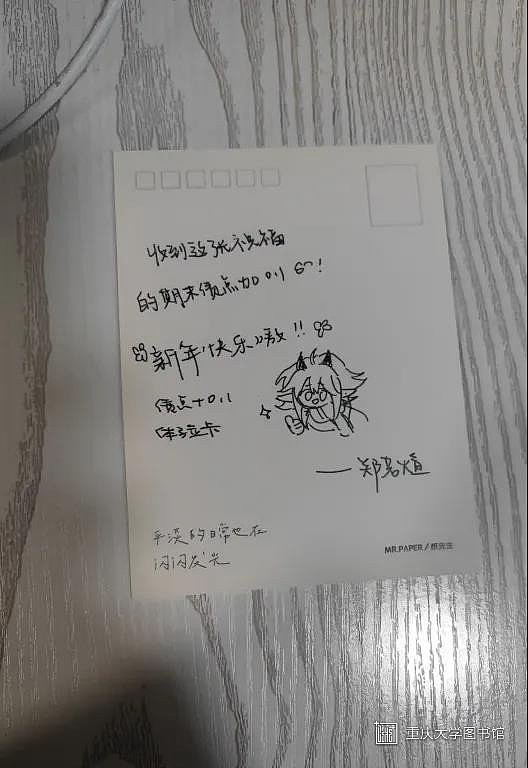 收到这张祝福
的期末绩点加0.1 6^!
新年快乐嗷!!
绩点+0.1
体验卡
平淡的日常也在
闪闪发光
MR.PAPER/纸先生
重庆大学图书馆